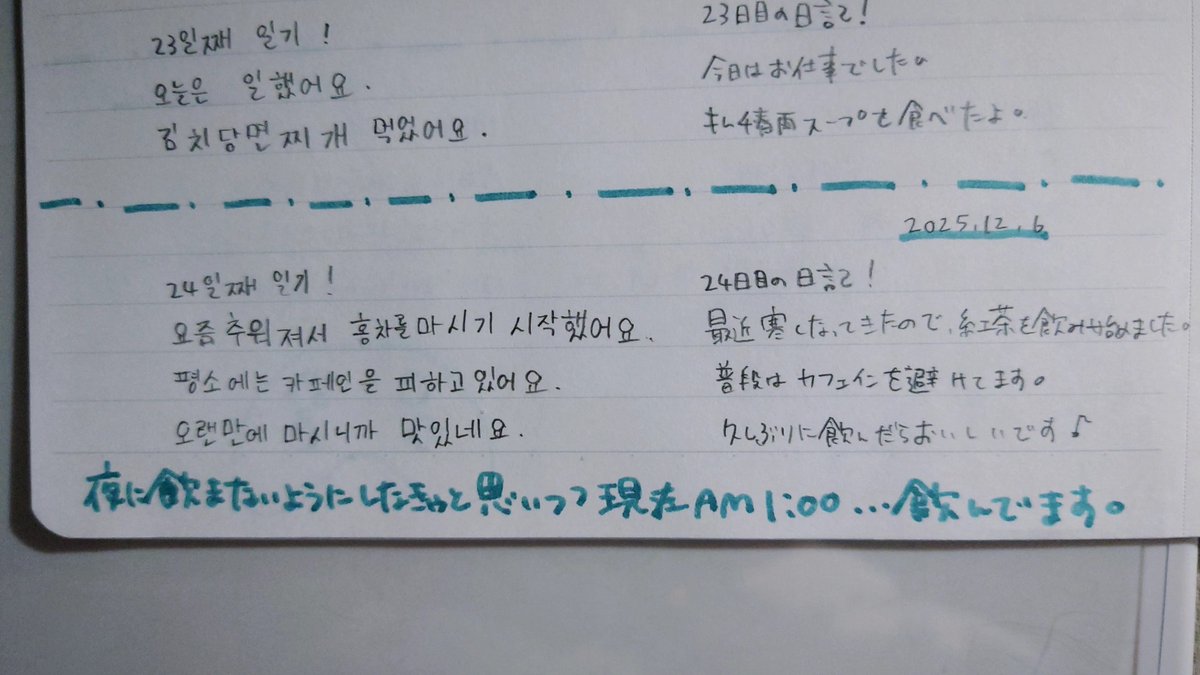 23일째 일기!
오늘은 일했어요.
김치당면찌개 먹었어요.
23日目の日記!
今日はお仕事でした。
キムチ春雨スープも食べたよ。
2025.12.6
24일째 일기!
요즘 추워져서 홍차를 마시기 시작했어요.
평소에는 카페인을 피하고 있어요.
오랜만에 마시니까 맛있네요.
24日目の日記!
最近寒くなってきたので、紅茶を飲み始めました。
普段はカフェインを避けてます。
久しぶりに飲んだらおいしいです♪
夜に飲まないようにしたいと思いつつ現在AM1:00...飲んでます。